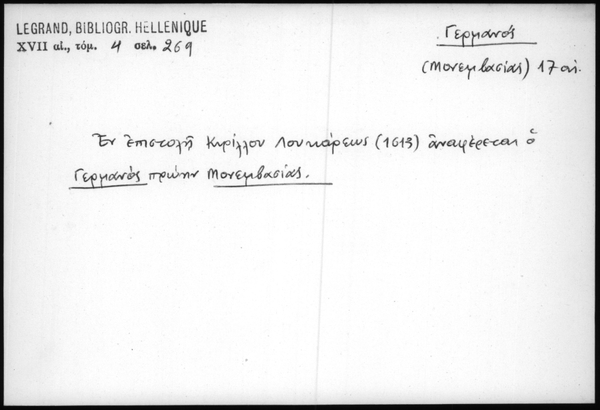 LEGRAND, BIBLIOGR. HELLENIQUE
XVII αἰ., τόμ. 4 σελ. 269
Γερμανός
(Μονεμβασίας) 17 αἰ.
Ἐν ἐπιστολῇ Κυρίλλου Λουκάρεως (1613) ἀναφέρεται ὁ
Γερμανός πρώην Μονεμβασίας.